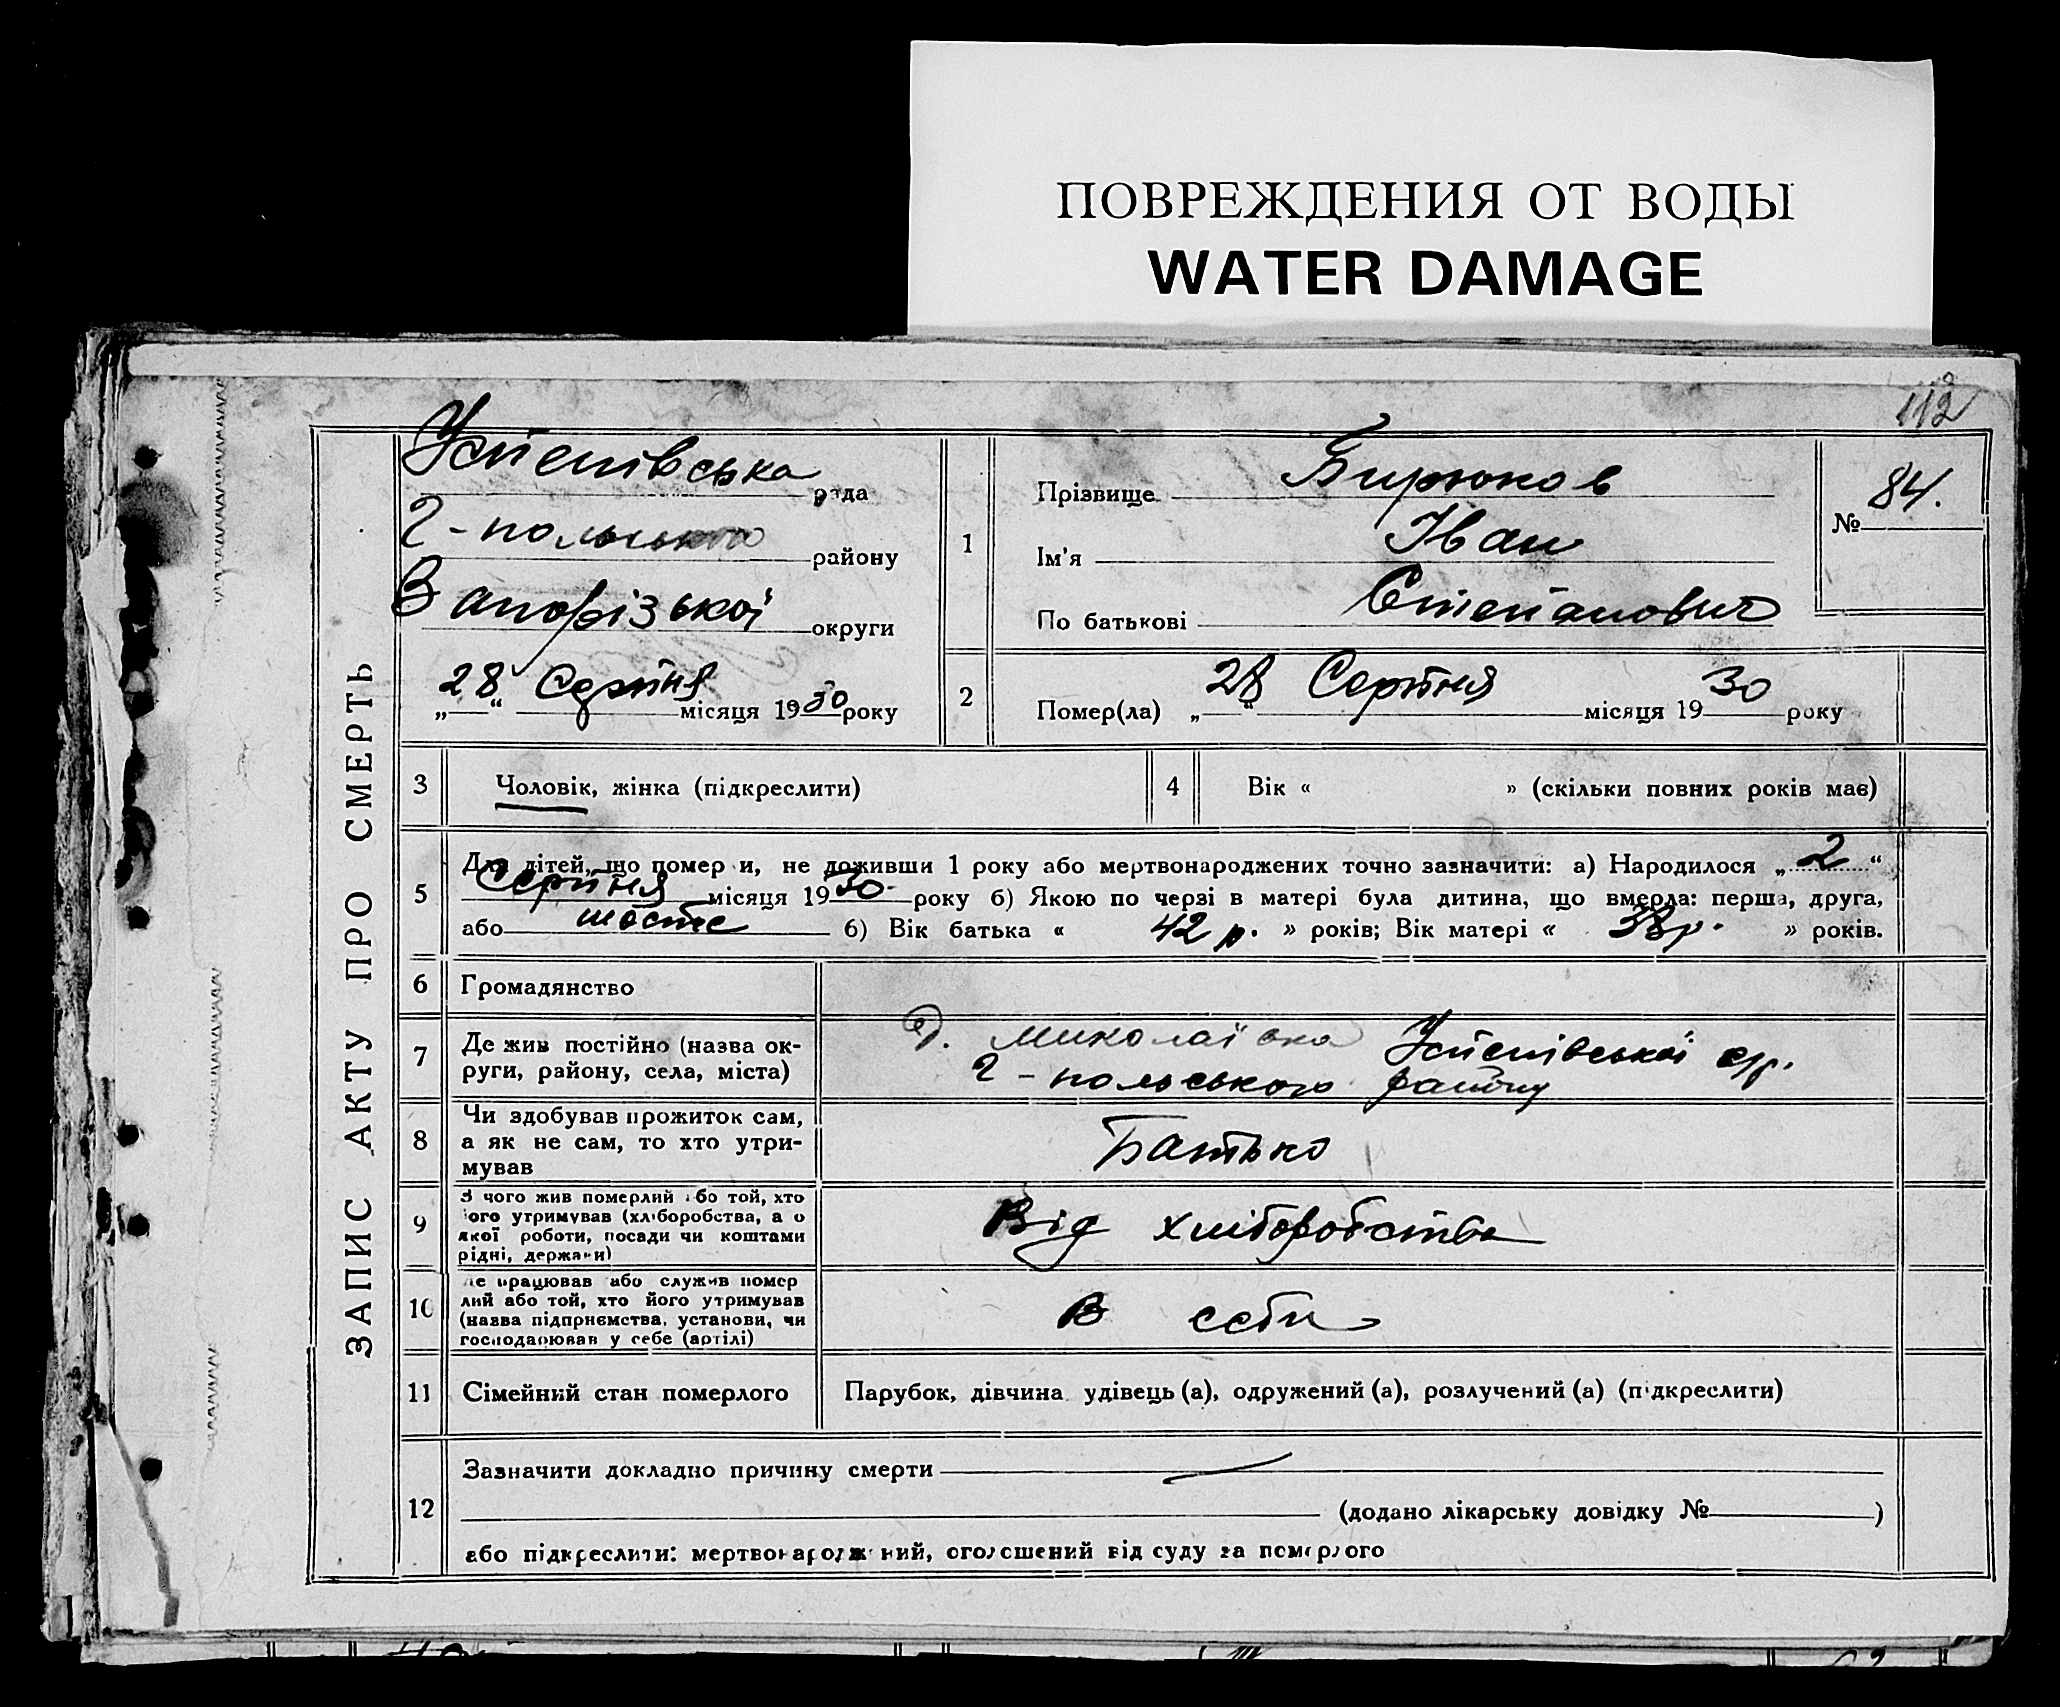 ПОВРЕЖДЕНИЯ ОТ ВОДЫ
WATER DAMAGE
112
ЗАПИС АКТУ ПРО СМЕРТЬ
Успенівська рада
Г-польського району
Запорізької округи
„28“ Серпня місяця 1930 року
1
Прізвище Бирюков
Ім'я Іван
По батькові Степанович
№ 84.
2
Помер(ла) „28“ Серпня місяця 1930 року
3 Чоловік, жінка (підкреслити)
4 Вік « » (скільки повних років має)
5
Для дітей, що померли, не доживши 1 року або мертвонароджених точно зазначити: а) Народилося „2“
Серпня місяця 1930 року б) Якою по черзі в матері була дитина, що вмерла: перша, друга,
або шосте б) Вік батька « 42 р. » років; Вік матері « 38 р. » років.
6 Громадянство
7
Де жив постійно (назва ок-
руги, району, села, міста)
д. Миколаївка Успенівської с/р.
Г-польського району
8
Чи здобував прожиток сам,
а як не сам, то хто утри-
мував
Батько
9
З чого жив померлий або той, хто
його утримував (хліборобства, а о
якої роботи, посади чи коштами
рідні, держави)
Від хліборобства
10
Де працював або служив помер
лий або той, хто його утримував
(назва підприємства, установи, чи
господарював у себе (артілі)
В себе
11 Сімейний стан померлого
Парубок, дівчина удівець (а), одружений (а), розлучений (а) (підкреслити)
12
Зазначити докладно причину смерти —
(додано лікарську довідку № )
або підкреслити: мертвонароджений, оголошений від суду за померлого